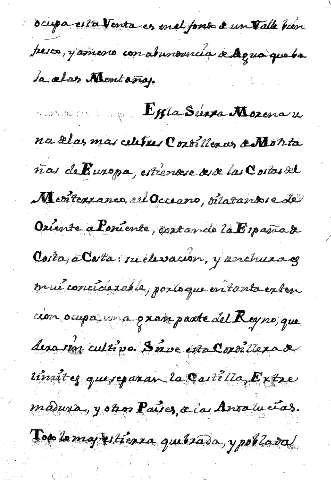 ocupa esta Venta es en el fonte de un Valle bien
fresco, y ameno con abundancia de Agua que ba
la de las Montañas.
Es la Sierra Morena u
na de las mas celebres Cordilleras de Monta
ñas de Europa, estiendese desde las Costas del
Mediterraneo, al Oceano, dilatandose de
Oriente a Poniente, cortando la España de
Costa, a Costa: su elevacion, y anchura es
mui conciderable, por lo que en tanta exten
cion ocupa una gran parte del Reyno, que
da sin cultivo. Sirve esta Cordillera de
limites que separan la Castilla, Extre
madura, y otros Paises, de las Andalucias.
Todo lo mas es tierra quebrada, y poblada